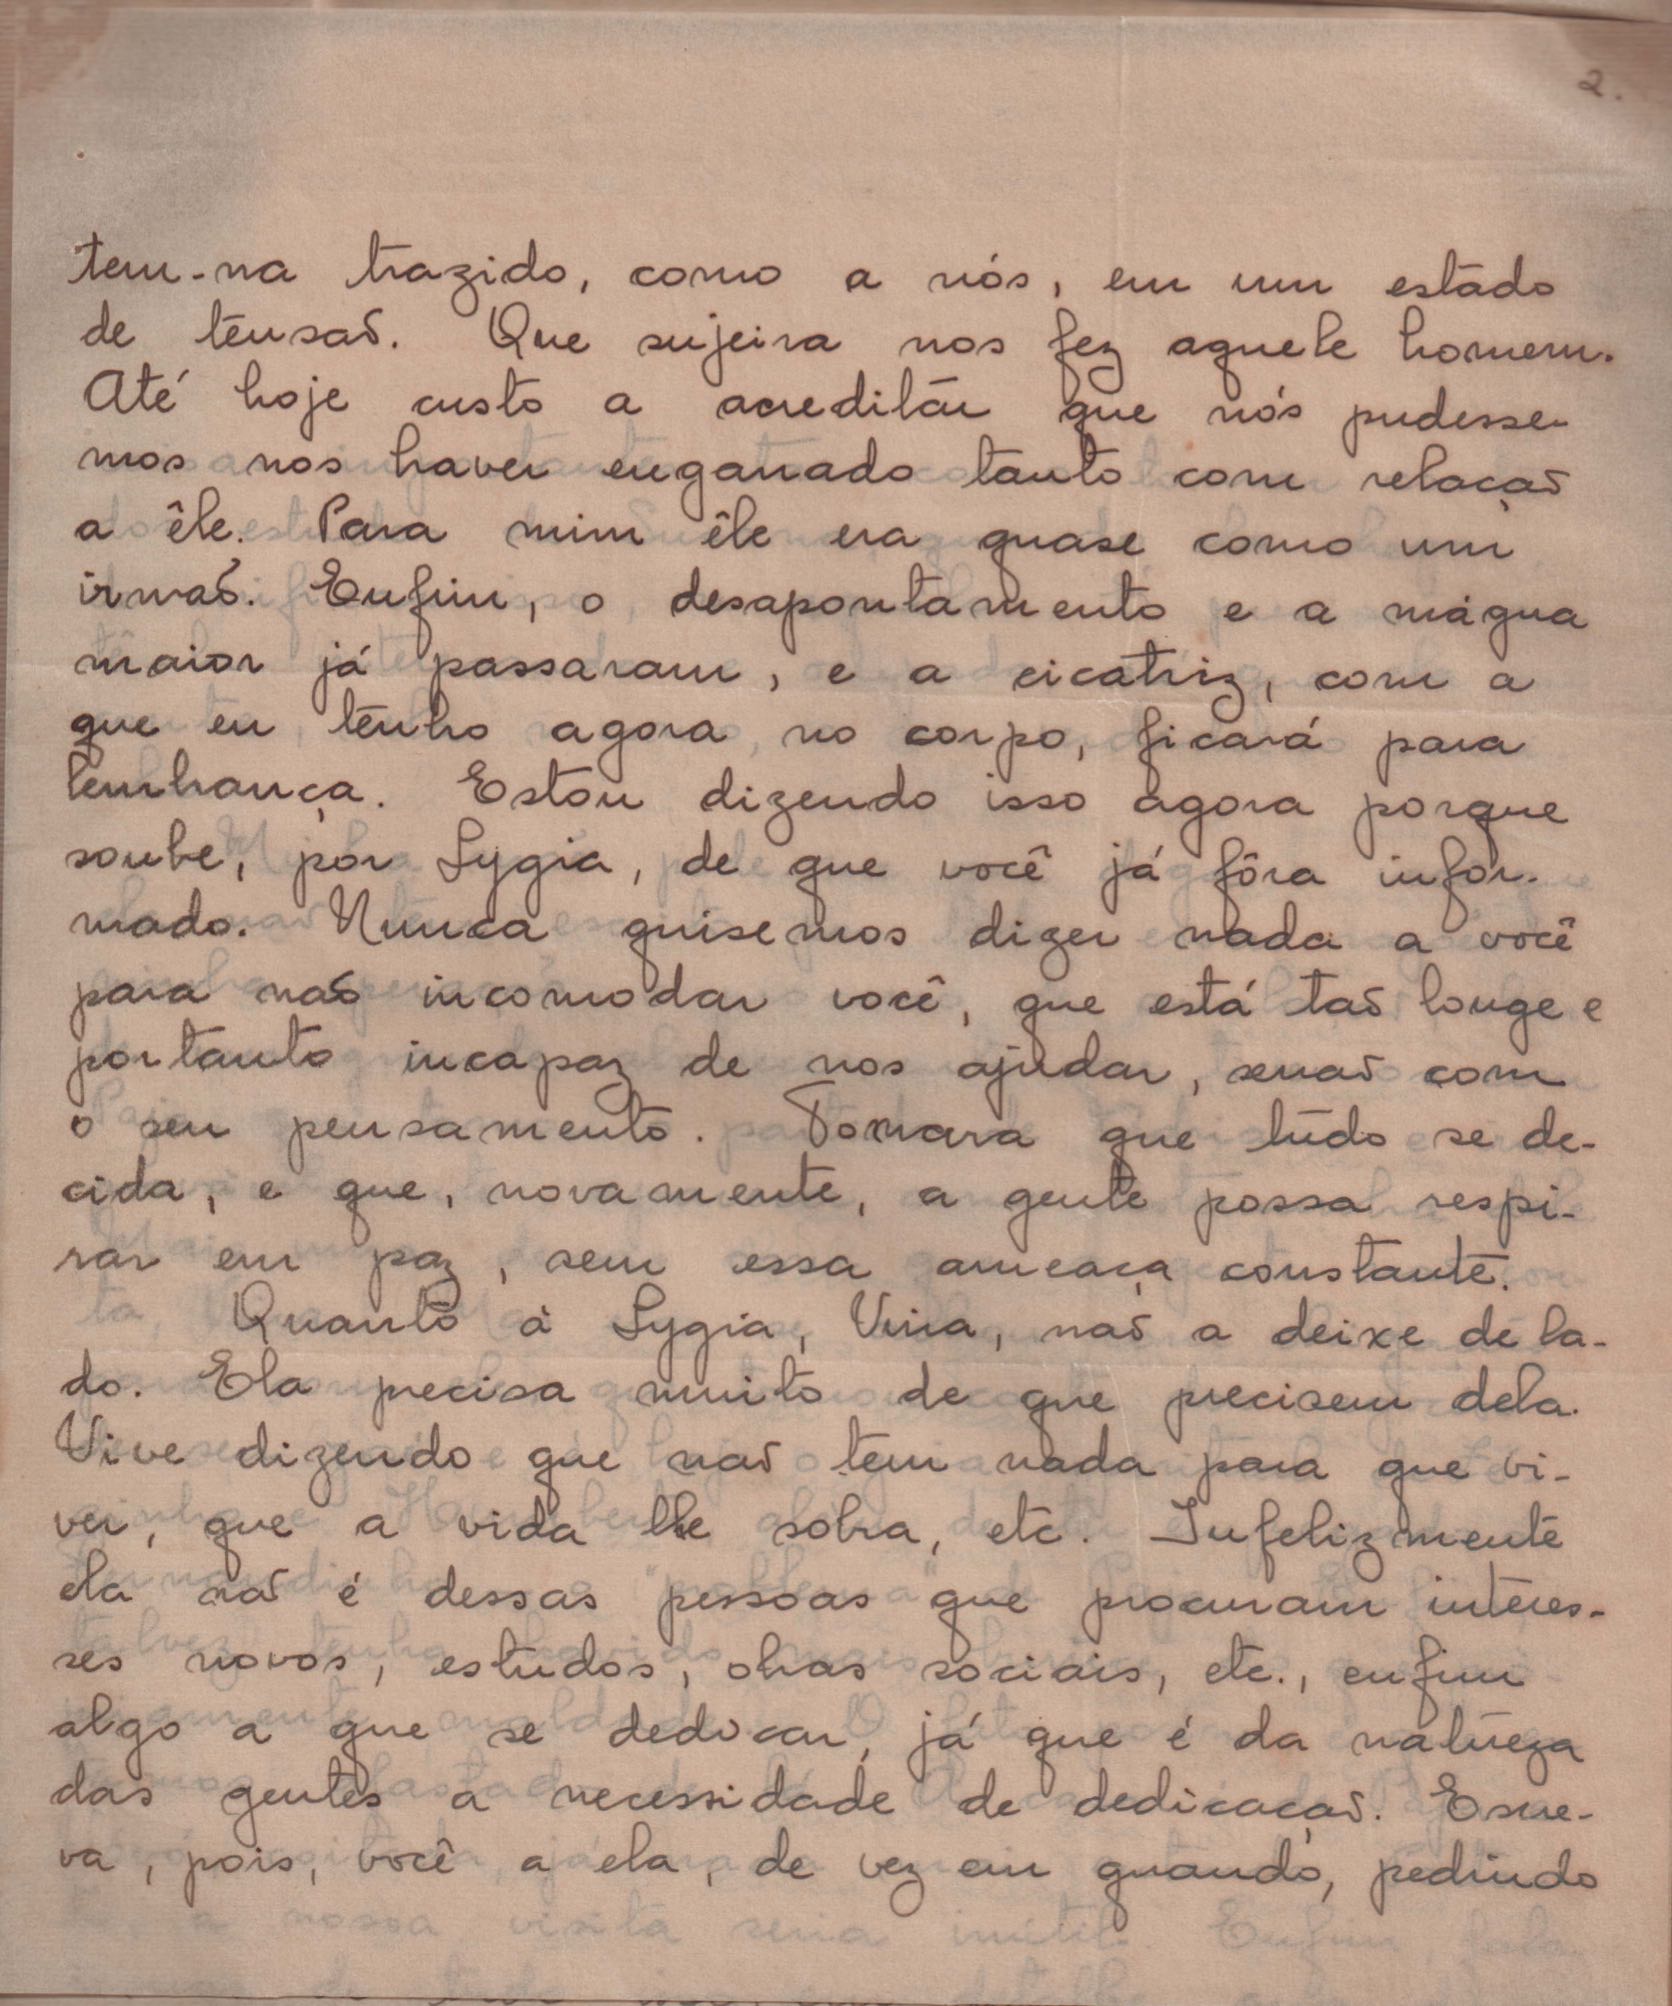 2.
tem-na trazido, como a nós, em um estado
de tensão. Que sujeira nos fez aquele homem.
Até hoje custo a acreditar que nós pudesse-
mos nos haver enganado tanto com relação
a êle. Para mim êle era quase como um
irmão. Enfim, o desapontamento e a mágua
maior já passaram, e a cicatriz, com a
que eu tenho agora no corpo, ficará para
lembrança. Estou dizendo isso agora porque
soube, por Lygia, de que você já fôra infor-
mado. Nunca quisemos dizer nada a você
para não incomodar você, que está tão longe e
portanto incapaz de nos ajudar, senão com
o seu pensamento. Tomara que tudo se de-
cida, e que, novamente, a gente possa respi-
rar em paz, sem essa ameaça constante.
Quanto à Lygia, Vina, não a deixe de la-
do. Ela precisa muito de que precisem dela.
Vive dizendo que não tem nada para que vi-
ver, que a vida lhe sobra, etc. Infelizmente
ela não é dessas pessoas que procuram interes-
ses novos, estudos, obras sociais, etc., enfim
algo a que se dedicar, já que é da natureza
das gentes a necessidade de dedicação. Escre-
va, pois, você a ela, de vez em quando, pedindo